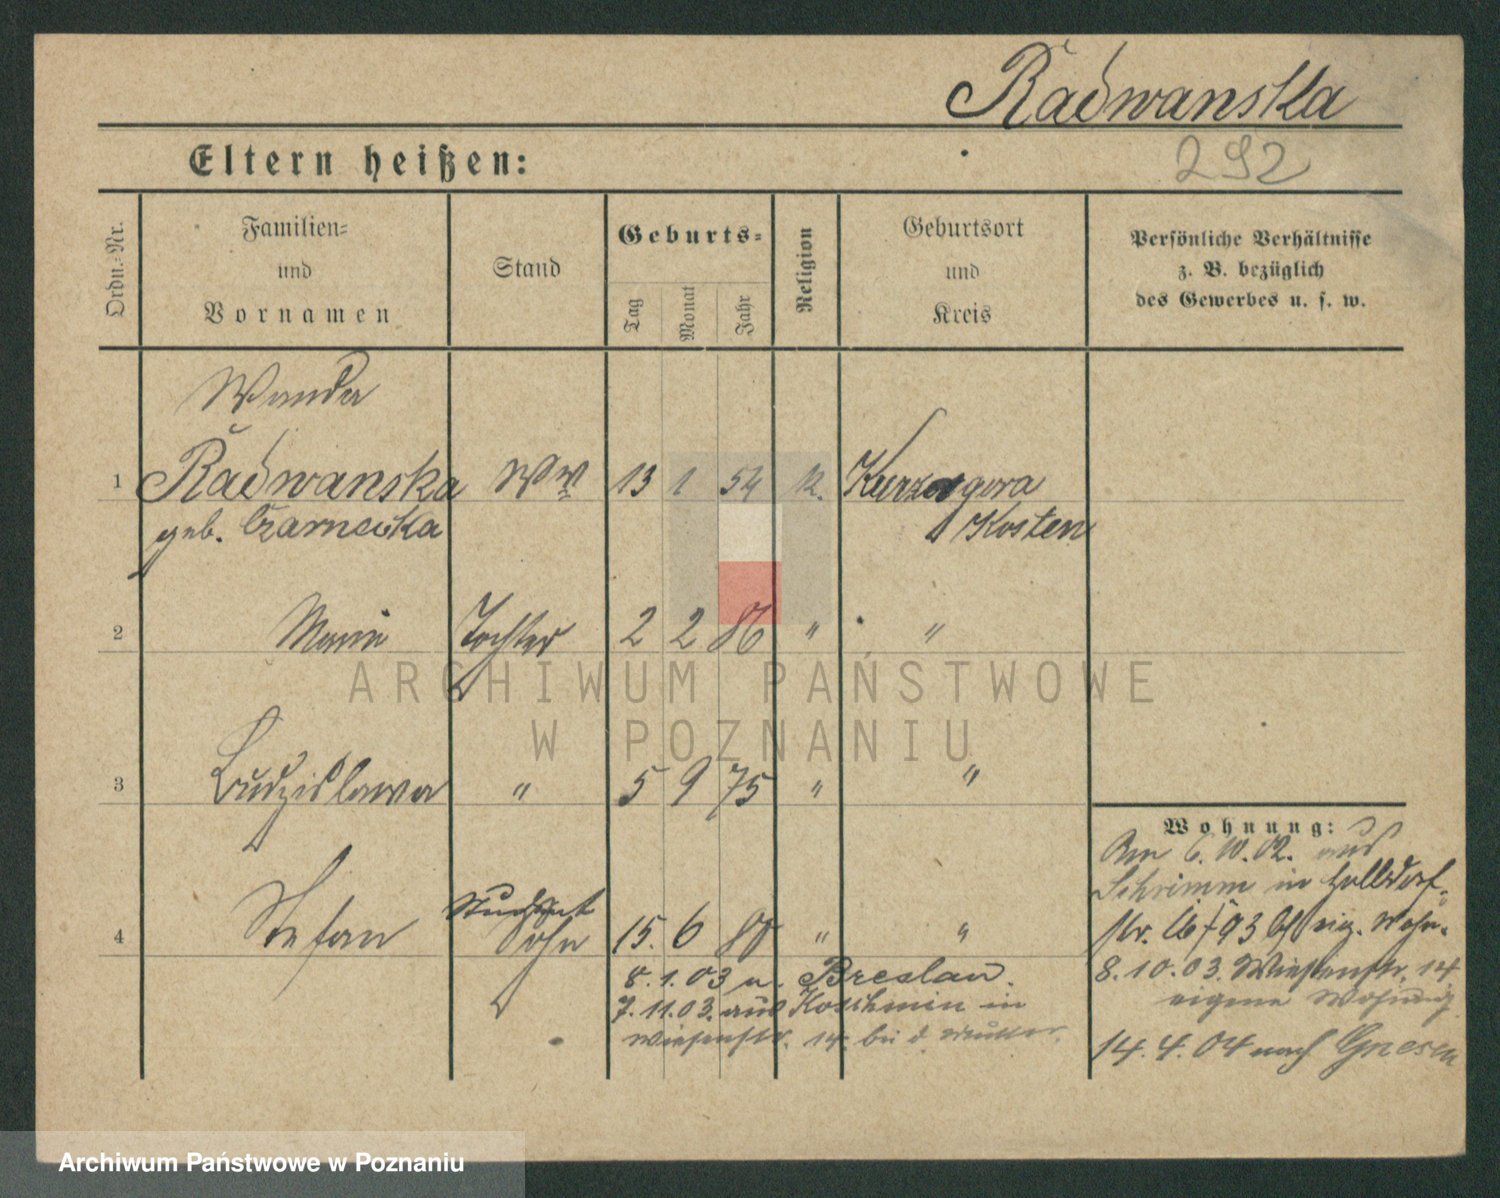 Radwanska
Eltern heißen:
292
Ordn.-Nr.
Familien-
und
Vornamen
Stand
Geburts-
Tag
Monat
Jahr
Religion
Geburtsort
und
Kreis
Persönliche Verhältnisse
z. B. bezüglich
des Gewerbes u. s. w.
Wanda
1 Radwanska Ww 13 1 54 k. Kurzagora
geb. Czarnecka Kosten
2 Marie Tochter 2 2 86 " "
3 Budzislawa " 5 9 75 " "
Student
4 Stefan Sohn 15. 6 80 " "
8.1.03 n. Breslau.
7.11.03. aus Koschmin in
Wiesenstr. 14. bei d. Mutter.
Wohnung:
Am 6.10.02. aus
Schrimm in
str. 93 eig. Wohn.
8.10.03. Wiesenstr. 14
eigene Wohnung
14.4.04 nach Gnesen
ARCHIWUM PAŃSTWOWE
W POZNANIU
Archiwum Państwowe w Poznaniu